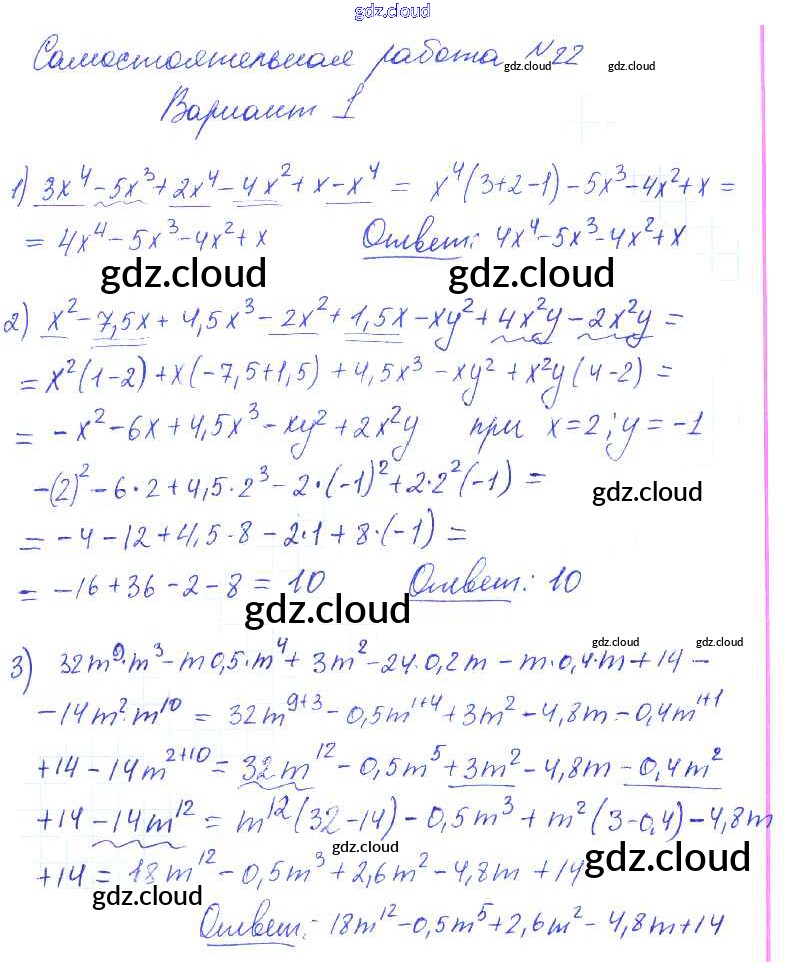 gdz.cloud
Самостоятельная работа №22
gdz.cloud gdz.cloud
Вариант 1
1) 3x⁴ - 5x³ + 2x⁴ - 4x² + x - x⁴ = x⁴(3+2-1) - 5x³ - 4x² + x =
= 4x⁴ - 5x³ - 4x² + x Ответ: 4x⁴ - 5x³ - 4x² + x
gdz.cloud gdz.cloud
2) x² - 7,5x + 4,5x³ - 2x² + 1,5x - xy² + 4x²y - 2x²y =
= x²(1-2) + x(-7,5+1,5) + 4,5x³ - xy² + x²y(4-2) =
= -x² - 6x + 4,5x³ - xy² + 2x²y при x=2; y=-1
-(2)² - 6·2 + 4,5·2³ - 2·(-1)² + 2·2²(-1) =
gdz.cloud
= -4 - 12 + 4,5·8 - 2·1 + 8·(-1) =
= -16 + 36 - 2 - 8 = 10 Ответ: 10
gdz.cloud
gdz.cloud gdz.cloud
3) 32m⁹·m³ - m0,5·m⁴ + 3m² - 24·0,2m - m·0,4·m + 14 -
- 14m²·m¹⁰ = 32m⁹⁺³ - 0,5m¹⁺⁴ + 3m² - 4,8m - 0,4m¹⁺¹
+14 - 14m²⁺¹⁰ = 32m¹² - 0,5m⁵ + 3m² - 4,8m - 0,4m²
+14 - 14m¹² = m¹²(32-14) - 0,5m³ + m²(3-0,4) - 4,8m
gdz.cloud gdz.cloud
+14 = 18m¹² - 0,5m³ + 2,6m² - 4,8m + 14
gdz.cloud
Ответ: 18m¹² - 0,5m⁵ + 2,6m² - 4,8m + 14